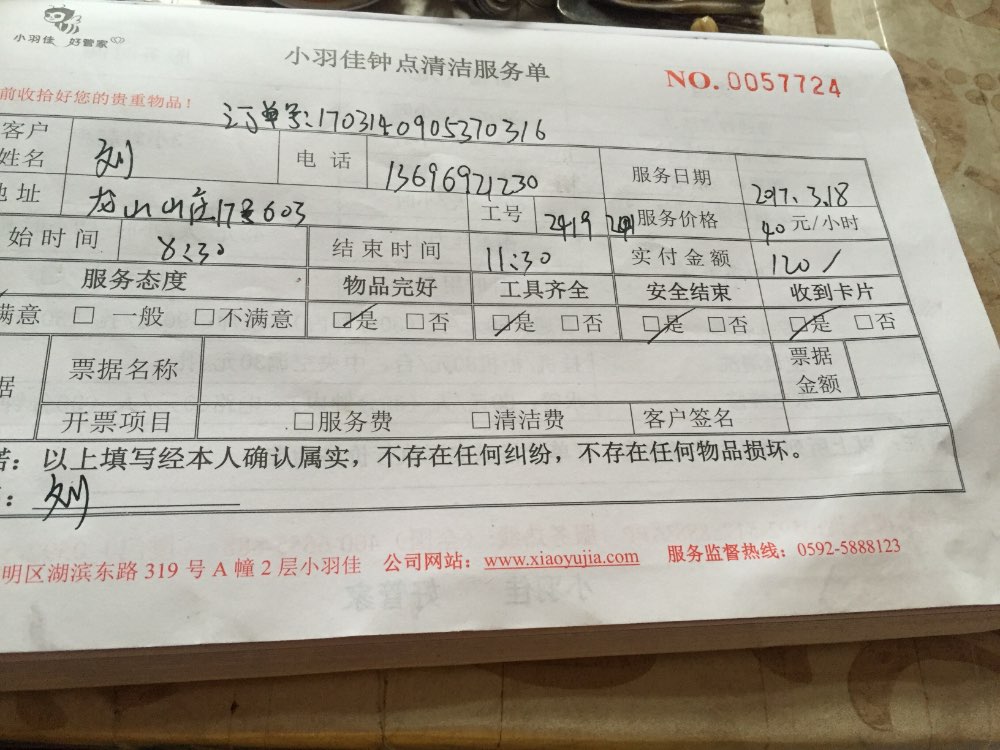 小羽佳 好管家
小羽佳钟点清洁服务单
NO.0057724
前收拾好您的贵重物品！
订单号:1703140905370316
客户姓名 刘 电话 13696921230 服务日期 2017.3.18
地址 龙山山庄17号603 工号 2419 服务价格 40元/小时
始时间 8:30 结束时间 11:30 实付金额 120/
服务态度 物品完好 工具齐全 安全结束 收到卡片
满意 □ 一般 □不满意 ☑是 □否 ☑是 □否 ☑是 □否 ☑是 □否
据 票据名称 票据金额
开票项目 □服务费 □清洁费 客户签名
诺：以上填写经本人确认属实，不存在任何纠纷，不存在任何物品损坏。
：刘
明区湖滨东路 319 号 A 幢 2 层小羽佳 公司网站：www.xiaoyujia.com 服务监督热线：0592-5888123